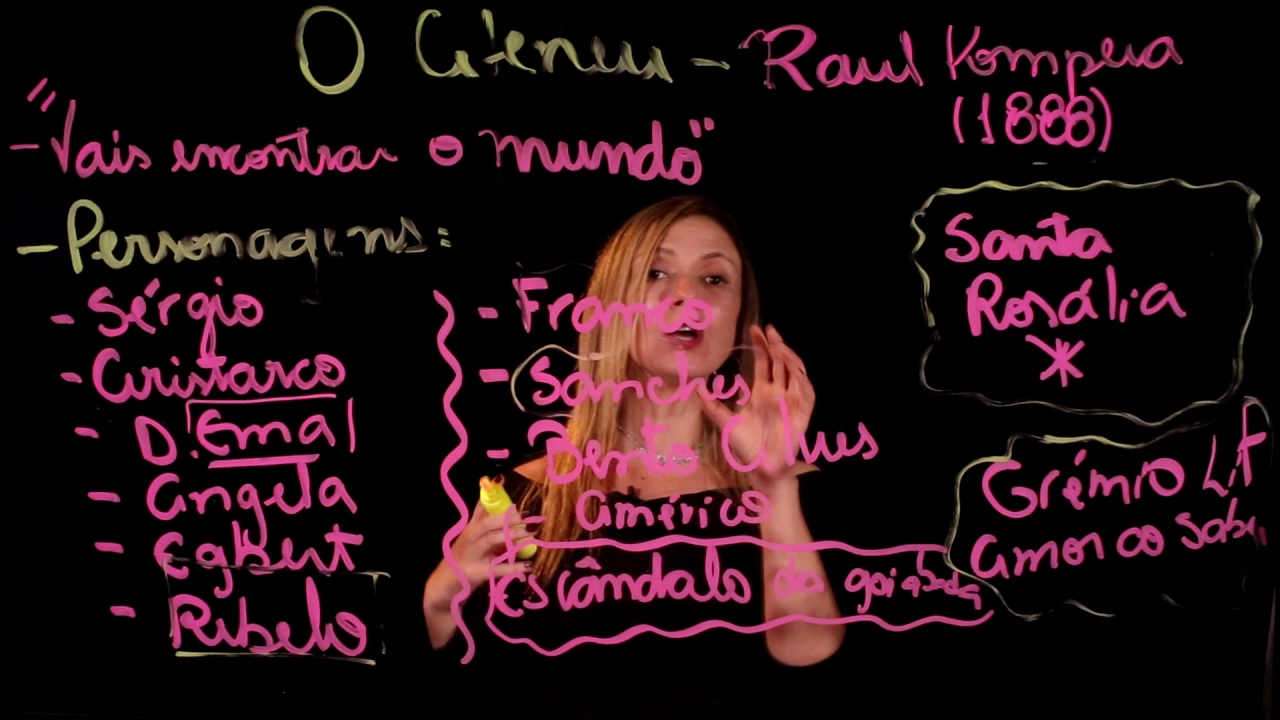 O Ateneu - Raul Pompeia
(1888)
- "Vais encontrar o mundo"
- Personagens:
- Sérgio
- Aristarco
- D. Ema
- Angela
- Egbert
- Ribelo
- Franco
- Sanches
- Bento Alves
- Américo
Escândalo da goiabada
Santa
Rosália
*
Grémio Lit
Amor ao Saber